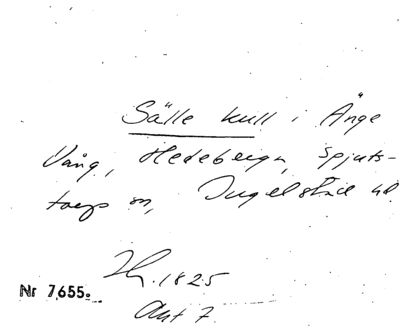 Sälle kull i Ånge
Vång, Hedeberga, Spjuts-
torps sn, Ingelstad hd.
1825
Nr 7,655.
Akt 7